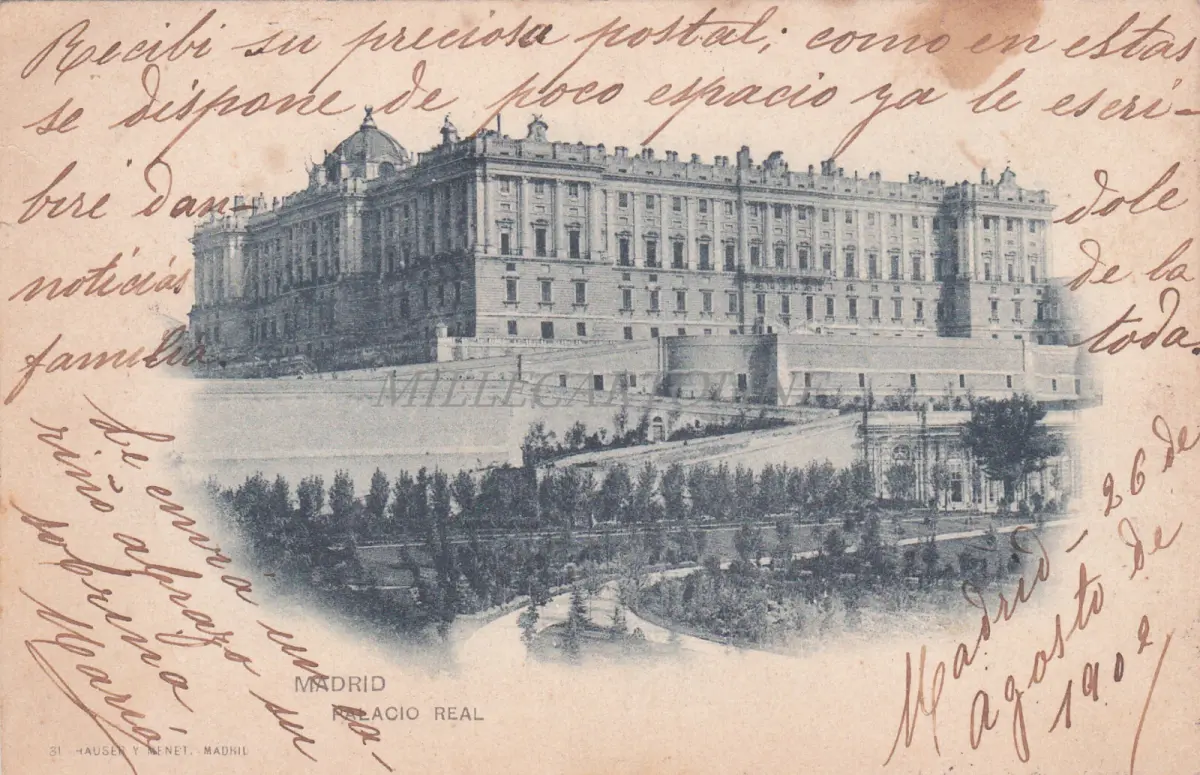 Recibi su preciosa postal; como en estas
se dispone de poco espacio ya le escri-
biré dan- dole
noticias de la
familia toda.
Le envia un ca-
riño abrazo su
sobrino
Mario
Madrid - 26 de
agosto de
1902
MILLECARTOLINE
MADRID
PALACIO REAL
31 HAUSER Y MENET.- MADRID